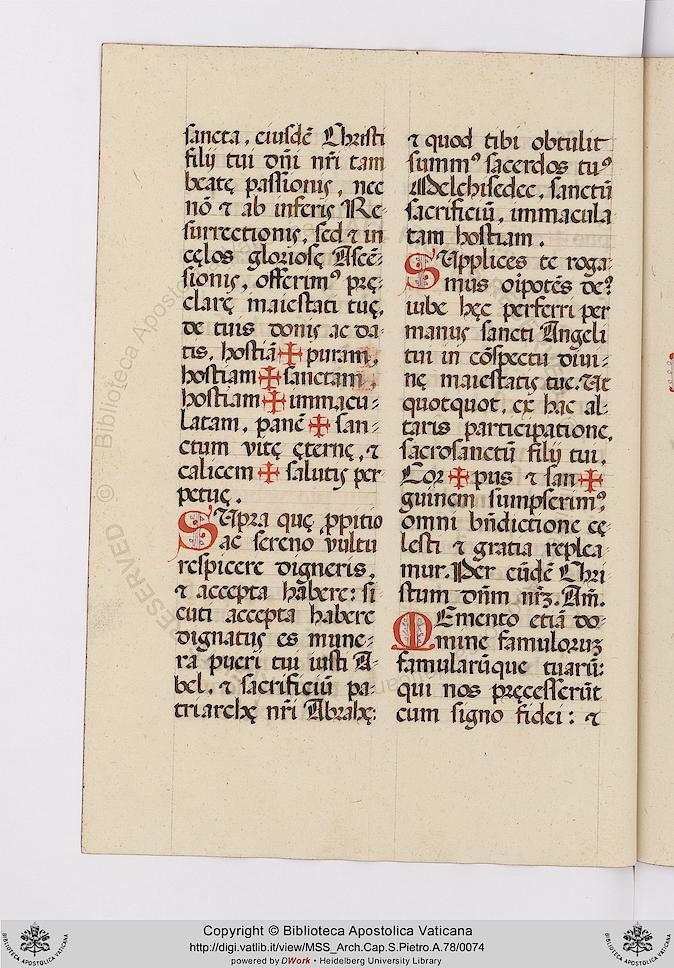 sancta, eiusdē Christi
filij tui dn̄i nr̄i tam
beatę passionis, nec
nō ⁊ ab inferis Re-
surrectionis, sed ⁊ in
cęlos gloriosę Ascē-
sionis, offerimꝰ prę-
clarę maiestati tuę,
de tuis donis ac da-
tis, hostiā ✠ puram,
hostiam ✠ sanctam,
hostiam ✠ immacu-
latam, panē ✠ san-
ctum vitę ęternę, ⁊
calicem ✠ salutis per
petuę.
SUpra quę ꝓpitio
ac sereno vultu
respicere digneris,
⁊ accepta hābere: si
cuti accepta habere
dignatus es mune-
ra pueri tui iusti A-
bel, ⁊ sacrificiū pa-
triarchę nr̄i Abrahę:
⁊ quod tibi obtulit
summꝰ sacerdos tuꝰ
Melchisedec, sanctū
sacrificiū, immacula
tam hostiam.
SUpplices te roga-
mus oīpotēs deꝰ
iube hęc perferri per
manus sancti Angeli
tui in cōspectu diui-
nę maiestatis tuę. Ut
quotquot, ex hac al-
taris participatione,
sacrosanctū filij tui,
Cor ✠ pus ⁊ san ✠
guinem sumpserimꝰ,
omni bn̄dictione cę-
lesti ⁊ gratia replea-
mur. Per eūdē Chri
stum dn̄m nr̄ꝫ. Am̄.
MEmento etiā do-
mine famuloruꝫ
famularūque tuarū:
qui nos pręcesserūt
cum signo fidei: ⁊
Copyright © Biblioteca Apostolica Vaticana
http://digi.vatlib.it/view/MSS_Arch.Cap.S.Pietro.A.78/0074
powered by DWork • Heidelberg University Library